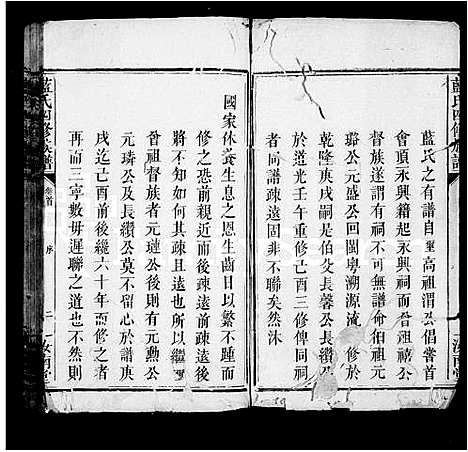 藍氏四修族譜
藍氏之有譜自聖高祖渭公偕常首
會頂永興籍起永興祠而曾祖禧公
督族遂謂有祠不可無譜爰請祖
璐公元盛公回閩粵溯源流
乾隆庚戌嗣是伯父長馨公長
於道光壬午重修己亥三修俾同祠
者同譜疎遠固非不聯矣然沐
國家休養生息之恩生齒日以繁不踵而
修之恐前親近而後疎遠前疎遠後
將不知如何其疎且遠也所以繼
曾祖督族者元璉公後則有元勳公
元璹公及長纘公莫不留心於譜庚
戌迄己酉前後纔六十年而修之者
再而三寧數毋遲聯之道也不然則
藍氏四修族譜
卷首
序
二
汝南堂